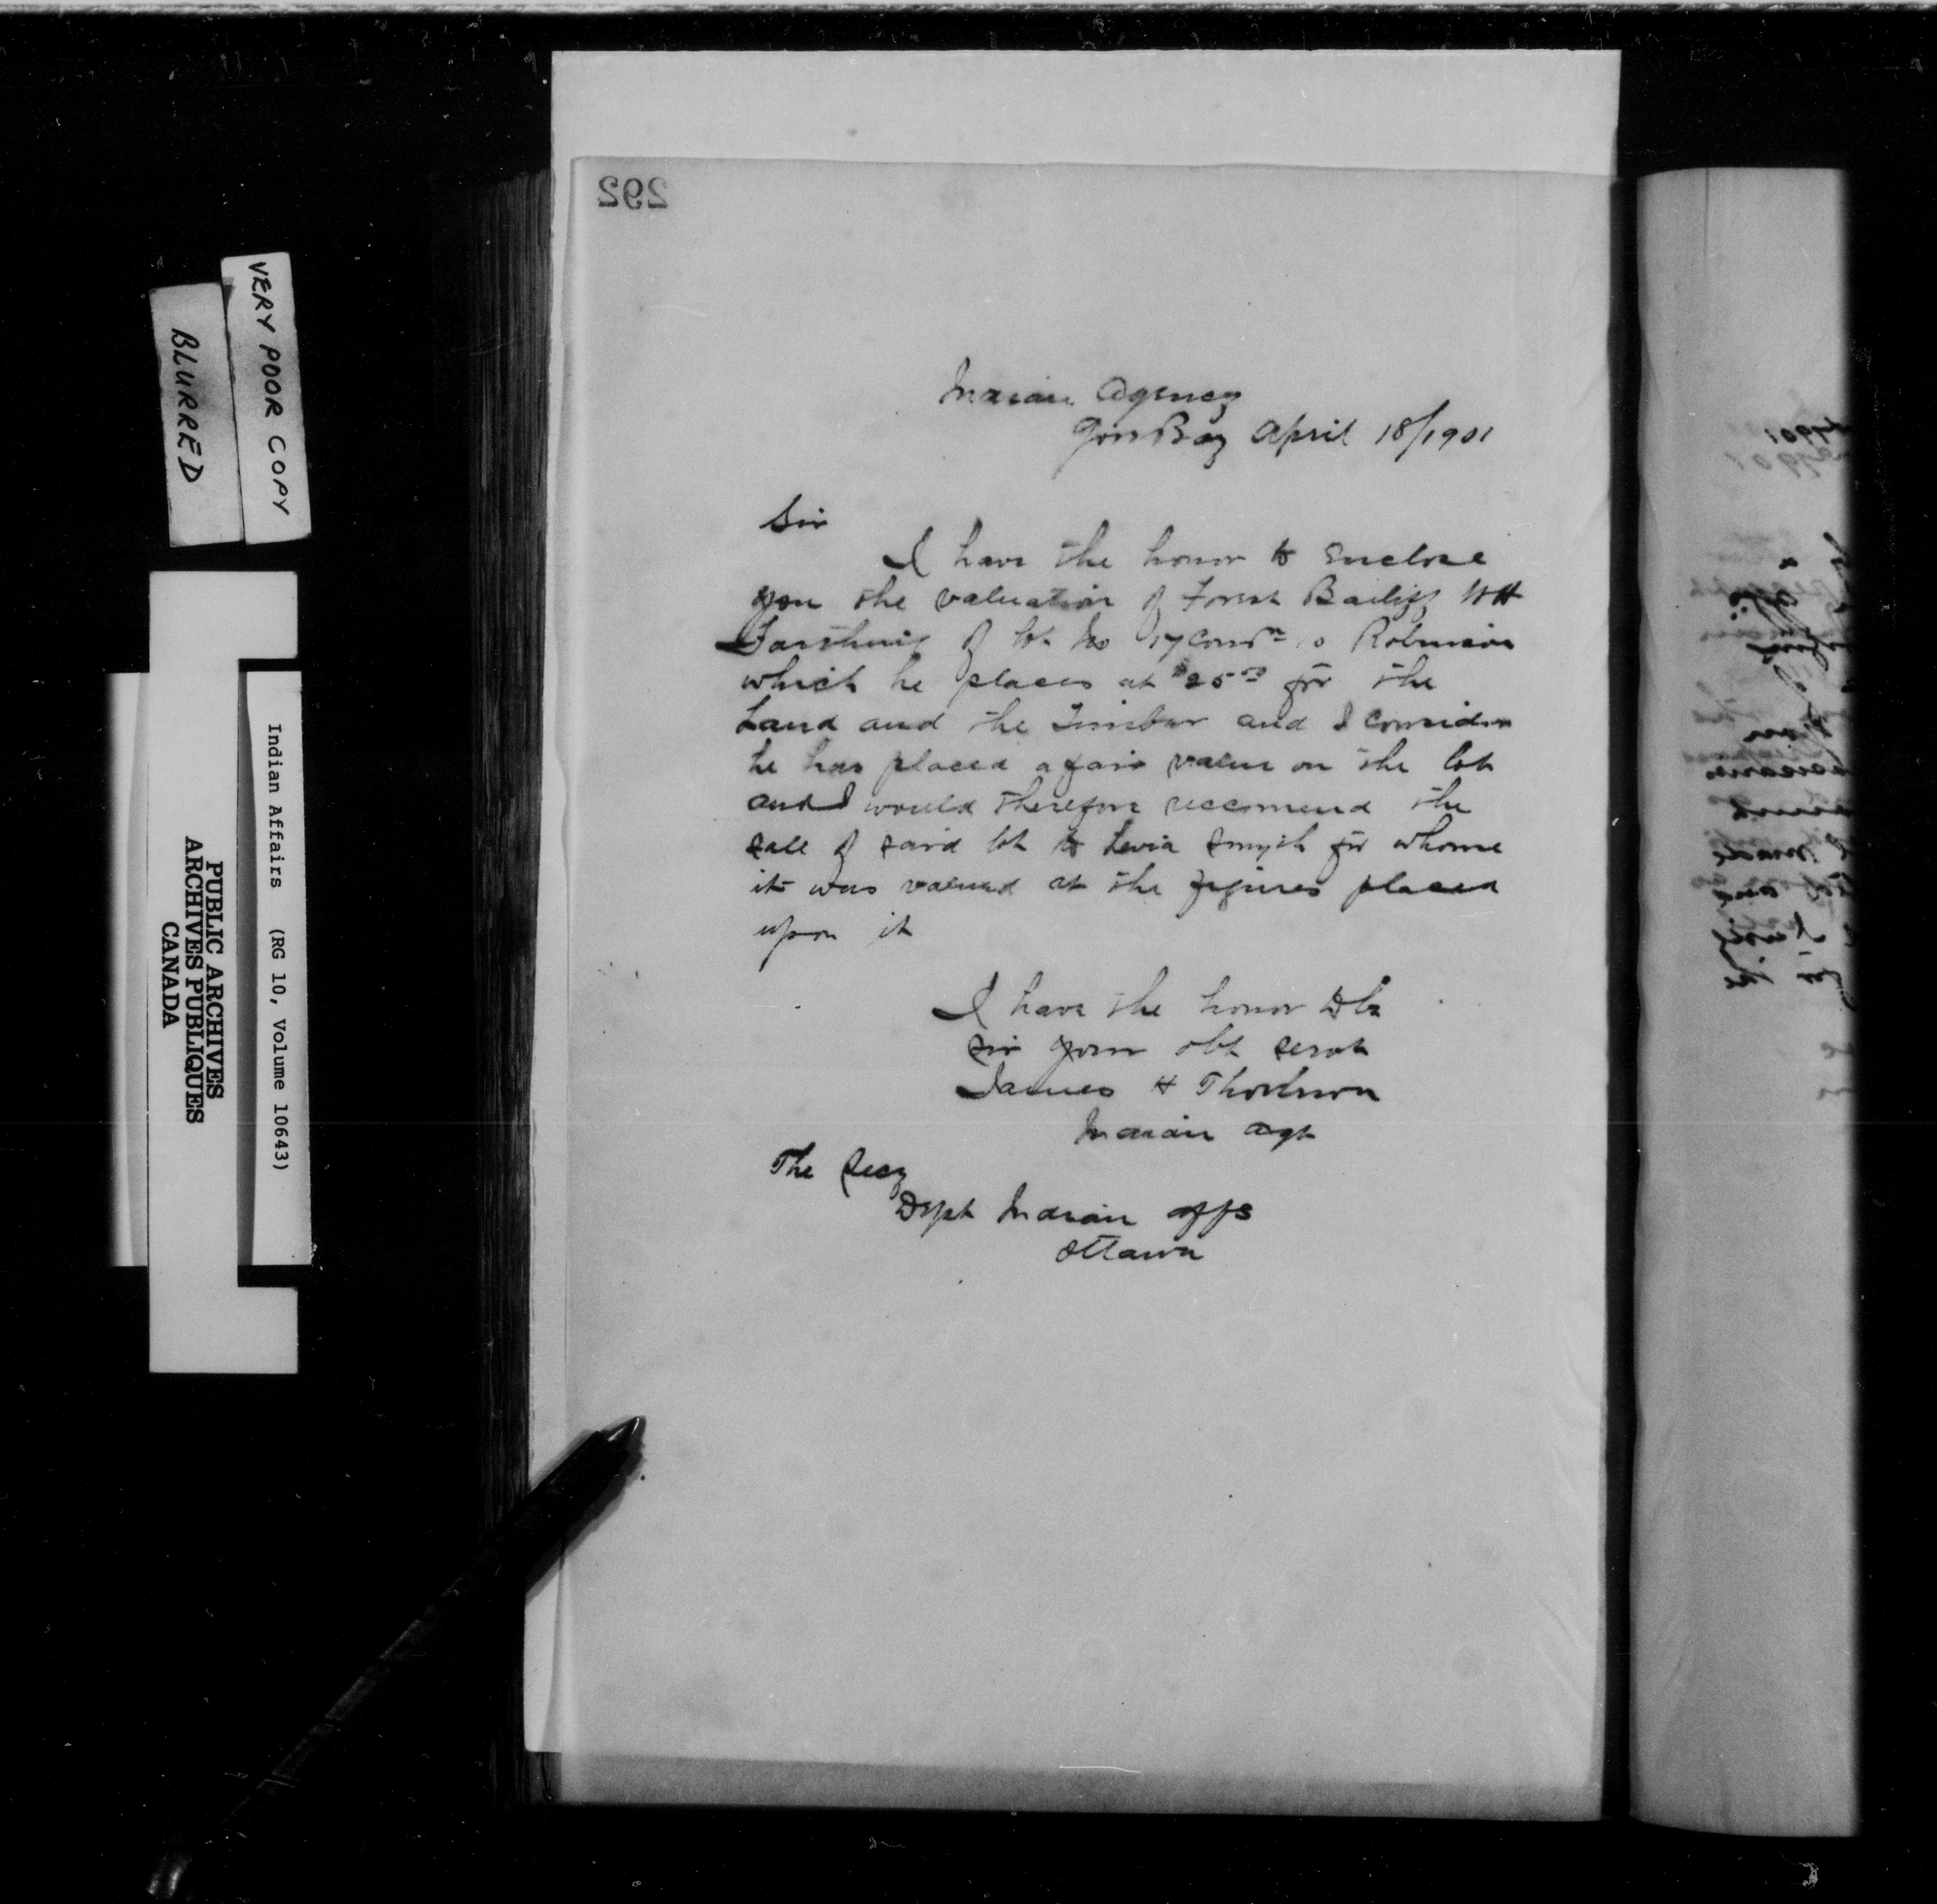 292
Indian Agency
Gore Bay April 18/1901
Sir
I have the honor to Enclose
you the valuation of Forest Bailiff WH
of lot No 17 Conss<sup>n</sup> 10 Robinson
which he places at $25<sup>00</sup> for the
Land and the Timber and I consider
he has placed a fair value on the lot
and I would therefore reccomend the
sale of said lot to Levia Smyth for whome
it was valued at the figures placed
upon it
I have the honor to be
Sir your obt servt
James H Thorburn
Indian Agt
The Secy
Dept Indian affs
Ottawa
VERY POOR COPY
BLURRED
Indian Affairs (RG 10, Volume 10643)
PUBLIC ARCHIVES
ARCHIVES PUBLIQUES
CANADA